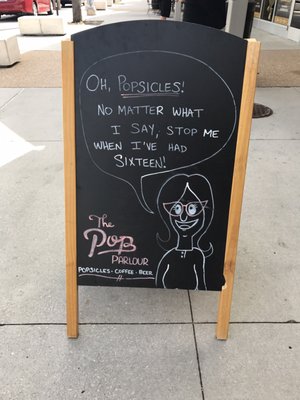 OH, POPSICLES!
NO MATTER WHAT
I SAY, STOP ME
WHEN I'VE HAD
SIXTEEN!
The
POP
PARLOUR
POPSICLES · COFFEE · BEER